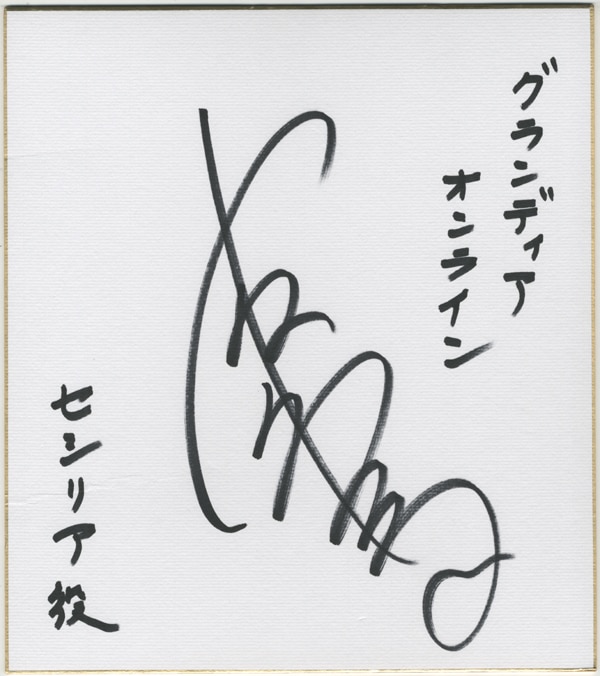 グランディア
オンライン
セシリア役